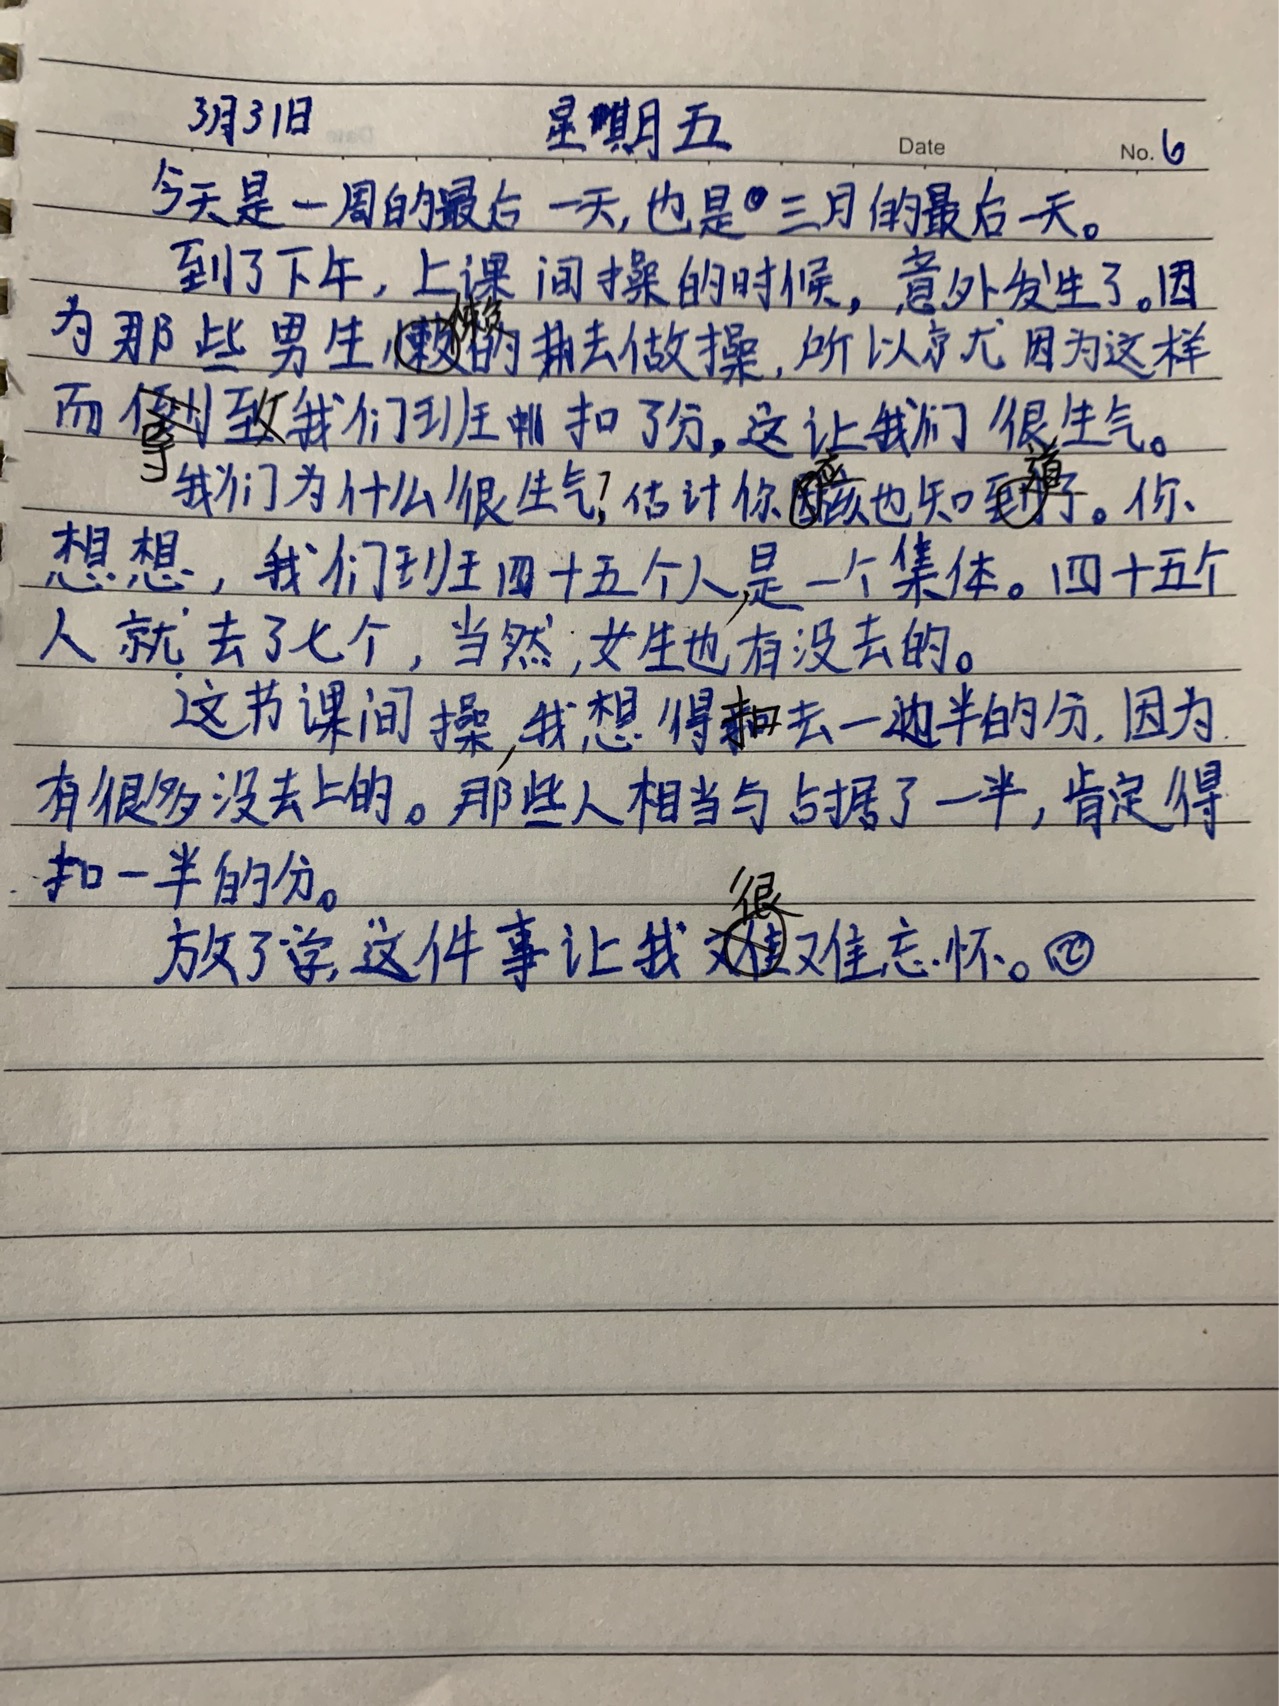 3月31日 星期五 Date No. 6
今天是一周的最后一天,也是三月的最后一天。
到了下午,上课间操的时候,意外发生了。因
懒
为那些男生懒的去做操,所以就因为这样
而倒致我们班扣了分。这让我们很生气。
导
应 道
我们为什么很生气?估计你该也知到了。你
想想,我们班四十五个人,是一个集体。四十五个
人就去了七个,当然,女生也有没去的。
这节课间操,我想得扣去一边半的分,因为
有很多没去上的。那些人相当与占据了一半,肯定得
扣一半的分。
很
放了学,这件事让我难难忘怀。